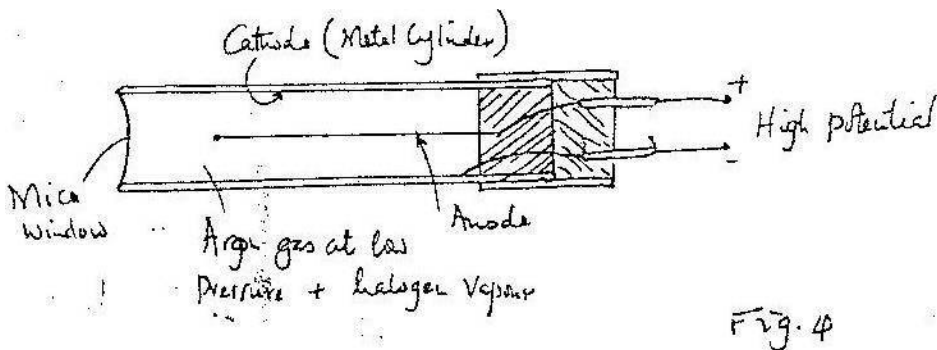 Cathode (Metal Cylinder)
+
High potential
-
Mica
window
Anode
Argon gas at low
Pressure + halogen Vapour
Fig. 4